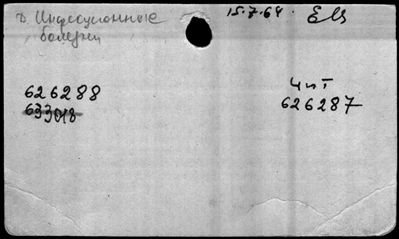 Д Инфекционные
болезни
15.7.64. Els
626288
633018
Чит
626287